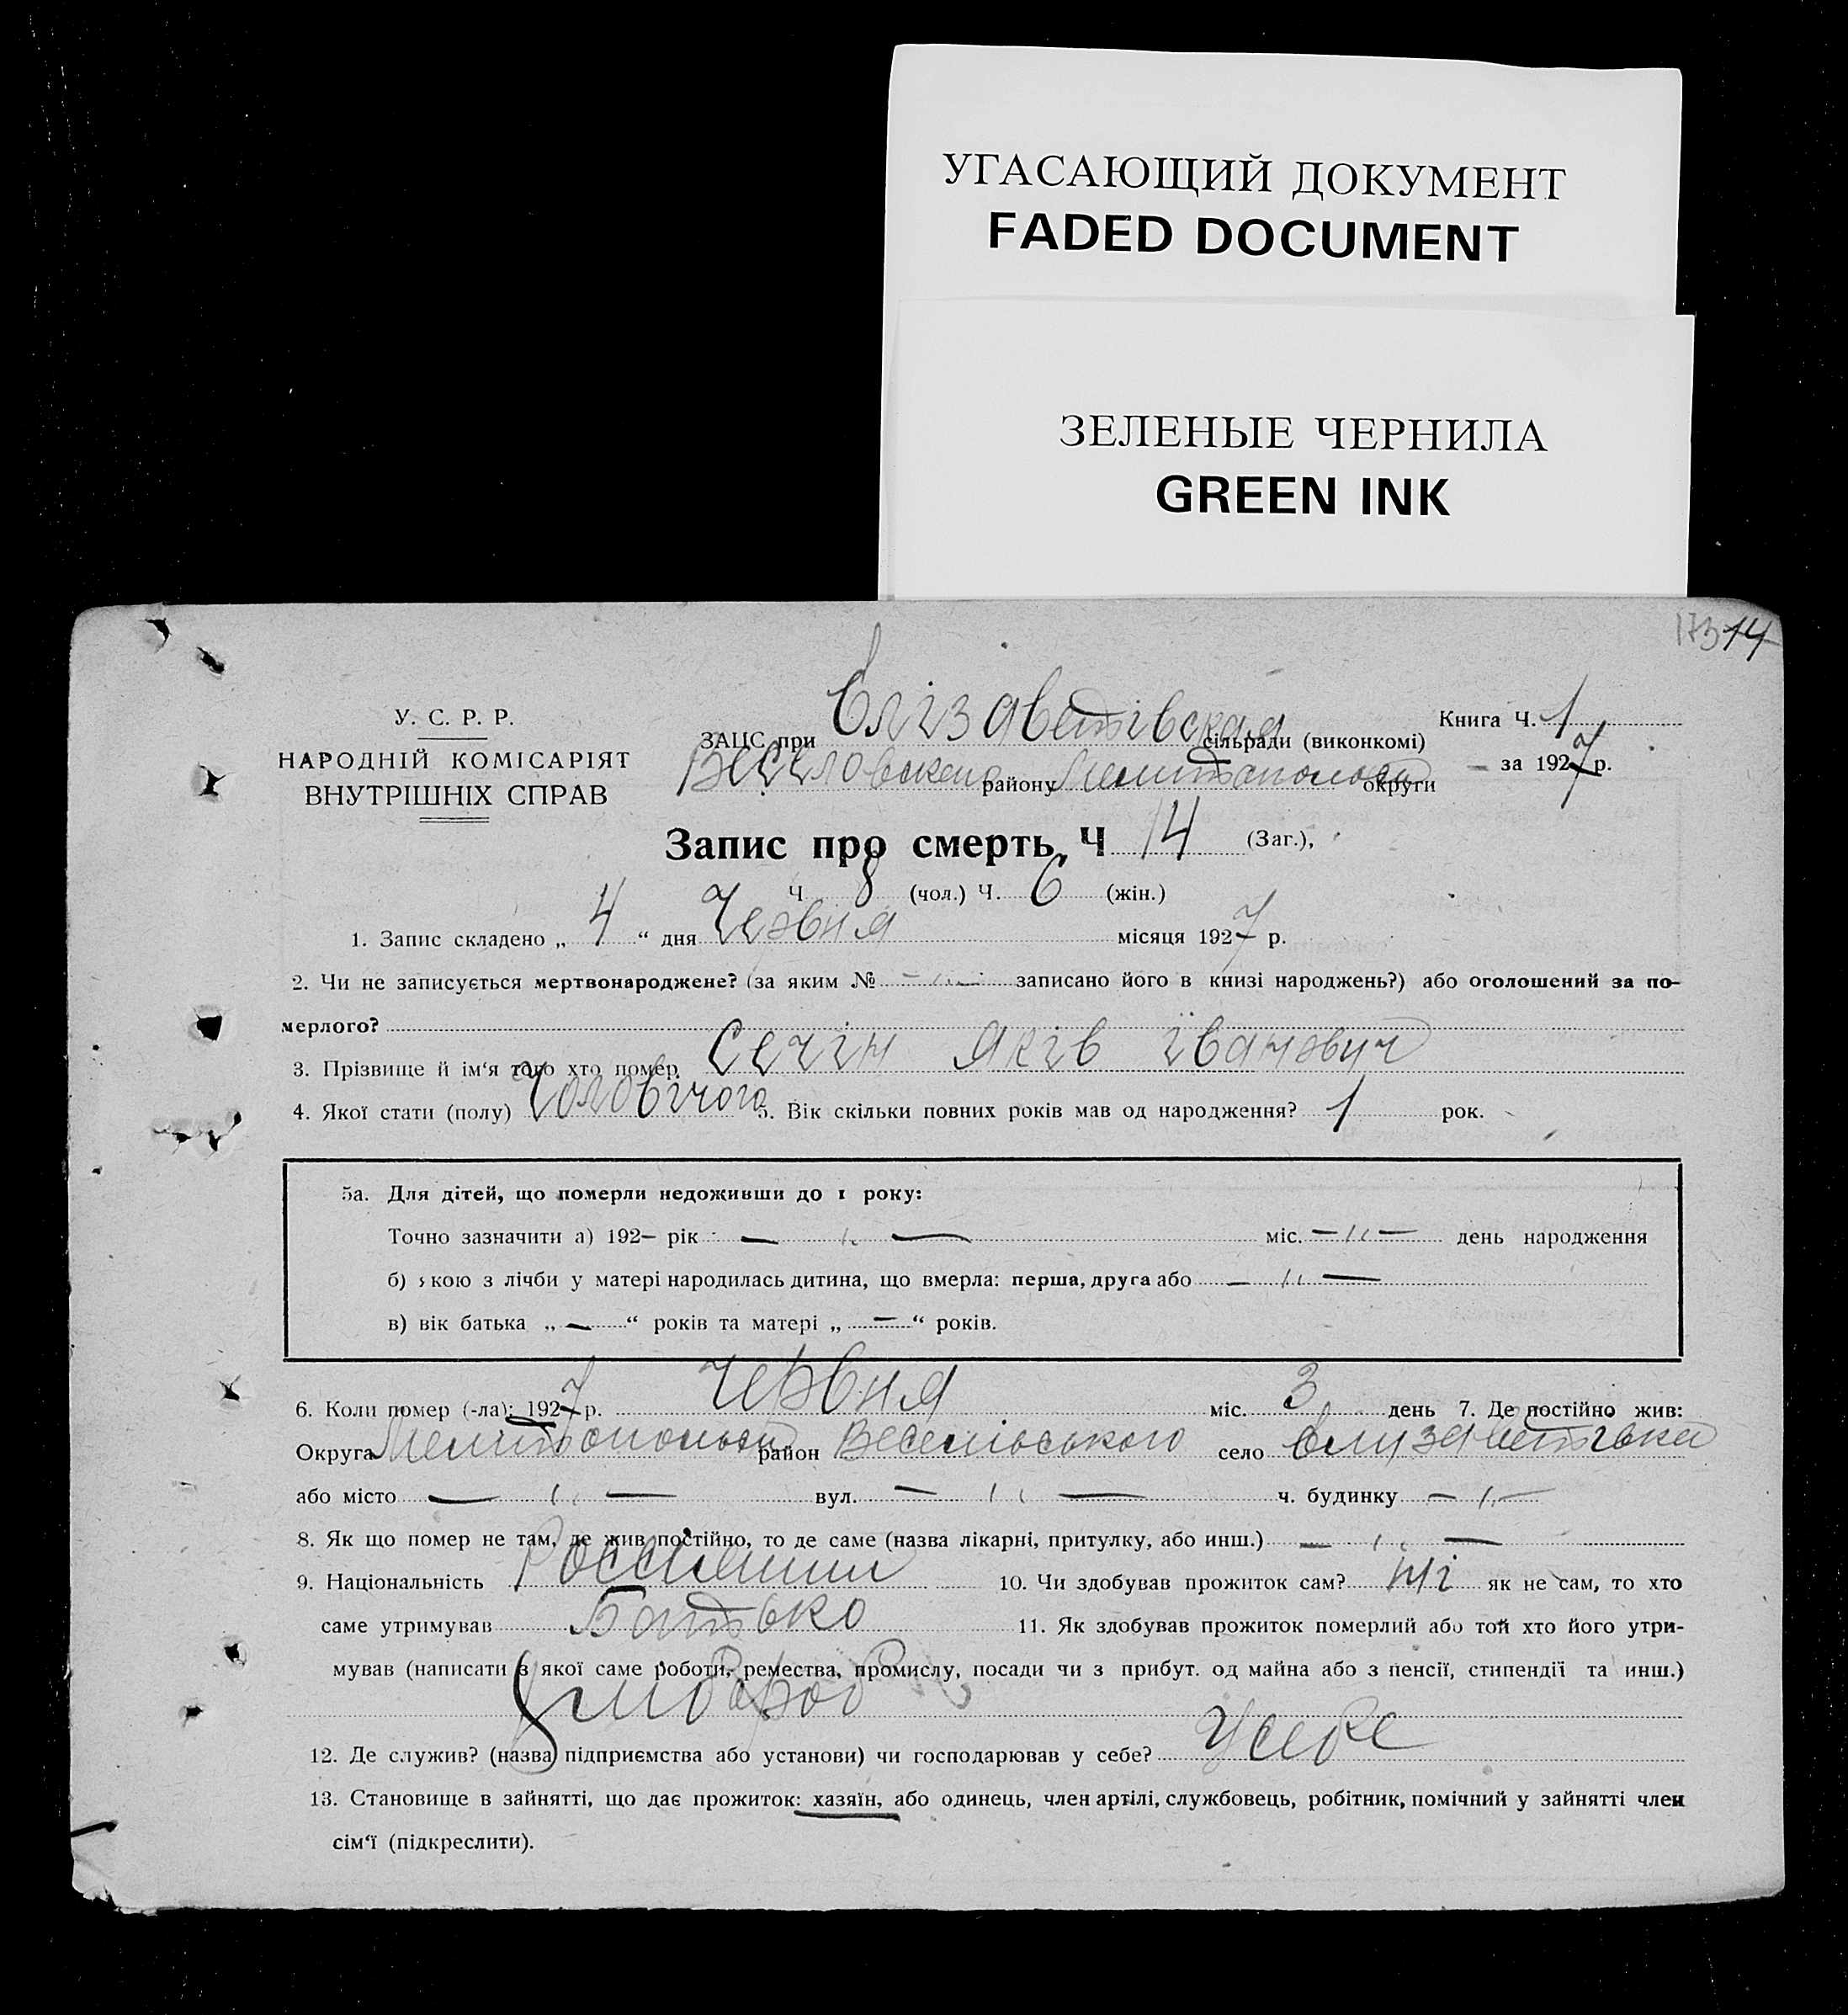 УГАСАЮЩИЙ ДОКУМЕНТ
FADED DOCUMENT
ЗЕЛЕНЫЕ ЧЕРНИЛА
GREEN INK
173 14
У. С. Р. Р.
НАРОДНІЙ КОМІСАРІЯТ
ВНУТРІШНІХ СПРАВ
ЗАЦС при Єлізаветівская сільради (виконкомі)
района Мелитопольськ округи
Книга Ч. 1
за 1927 р.
Запис про смерть, Ч 14 (Заг.),
Ч 8 (чол.) Ч. 6 (жін.)
1. Запис складено „ 4 “ дня Червня місяця 1927 р.
2. Чи не записується мертвонароджене? (за яким № — записано його в книзі народжень?) або оголошений за по-
мерлого?
3. Прізвище й ім‘я того хто помер Сечін Яків Іванович
4. Якої стати (полу) Чоловічого 5. Вік скільки повних років мав од народження? 1 рок.
5а. Для дітей, що померли недоживши до 1 року:
Точно зазначити а) 192— рік — „ — міс. — „ — день народження
б) якою з лічби у матері народилась дитина, що вмерла: перша, друга або — „ —
в) вік батька „ — “ років та матері „ — “ років.
6. Коли помер (-ла): 1927 р. Червня міс. 3 день 7. Де постійно жив:
Округа район Веселівського село Єлизаветівка
або місто — „ — вул. — „ — ч. будинку — „ —
8. Як що помер не там, де жив постійно, то де саме (назва лікарні, притулку, або инш.) — „ —
9. Національність 10. Чи здобував прожиток сам? Ні як не сам, то хто
саме утримував Батько 11. Як здобував прожиток померлий або той хто його утри-
мував (написати з якої саме роботи, ремества, промислу, посади чи з прибут. од майна або з пенсії, стипендії та инш.)
Хлібороб
12. Де служив? (назва підприємства або установи) чи господарював у себе? У себе
13. Становище в зайнятті, що дає прожиток: хазяїн, або одинець, член артілі, службовець, робітник, помічний у зайнятті член
сім‘ї (підкреслити).